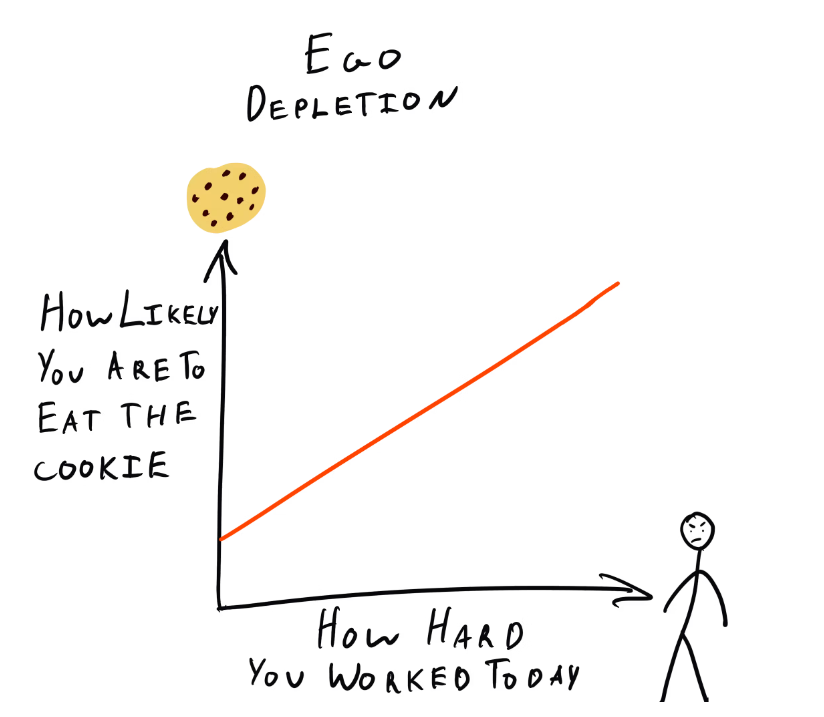 EGO
DEPLETION
HOW LIKELY
YOU ARE TO
EAT THE
COOKIE
HOW HARD
YOU WORKED TODAY